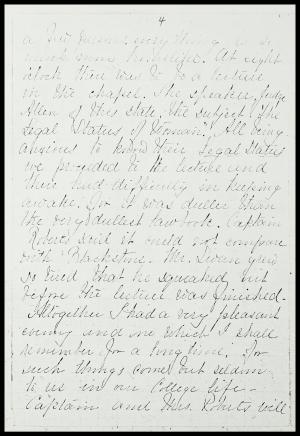 4
a few
much more
o'clock there was to be a lecture
in the chapel. The speaker, Judge
Allen of this State, the subject "The
Legal Status of Woman". All being
anxious to know their Legal Status
we proceeded to the lecture and
there had difficulty in keeping
awake. for it was duller than
the very dullest law book. Captain
Roberts said it could not compare
with Blackstone. Mr. Swan grew
so tired that he squeaked out
before the lecture was finished.
Altogether I had a very pleasant
evening and one which I shall
remember for a long time. for
such things come but seldom
to us in our College life.
Captain and Mrs. Roberts will